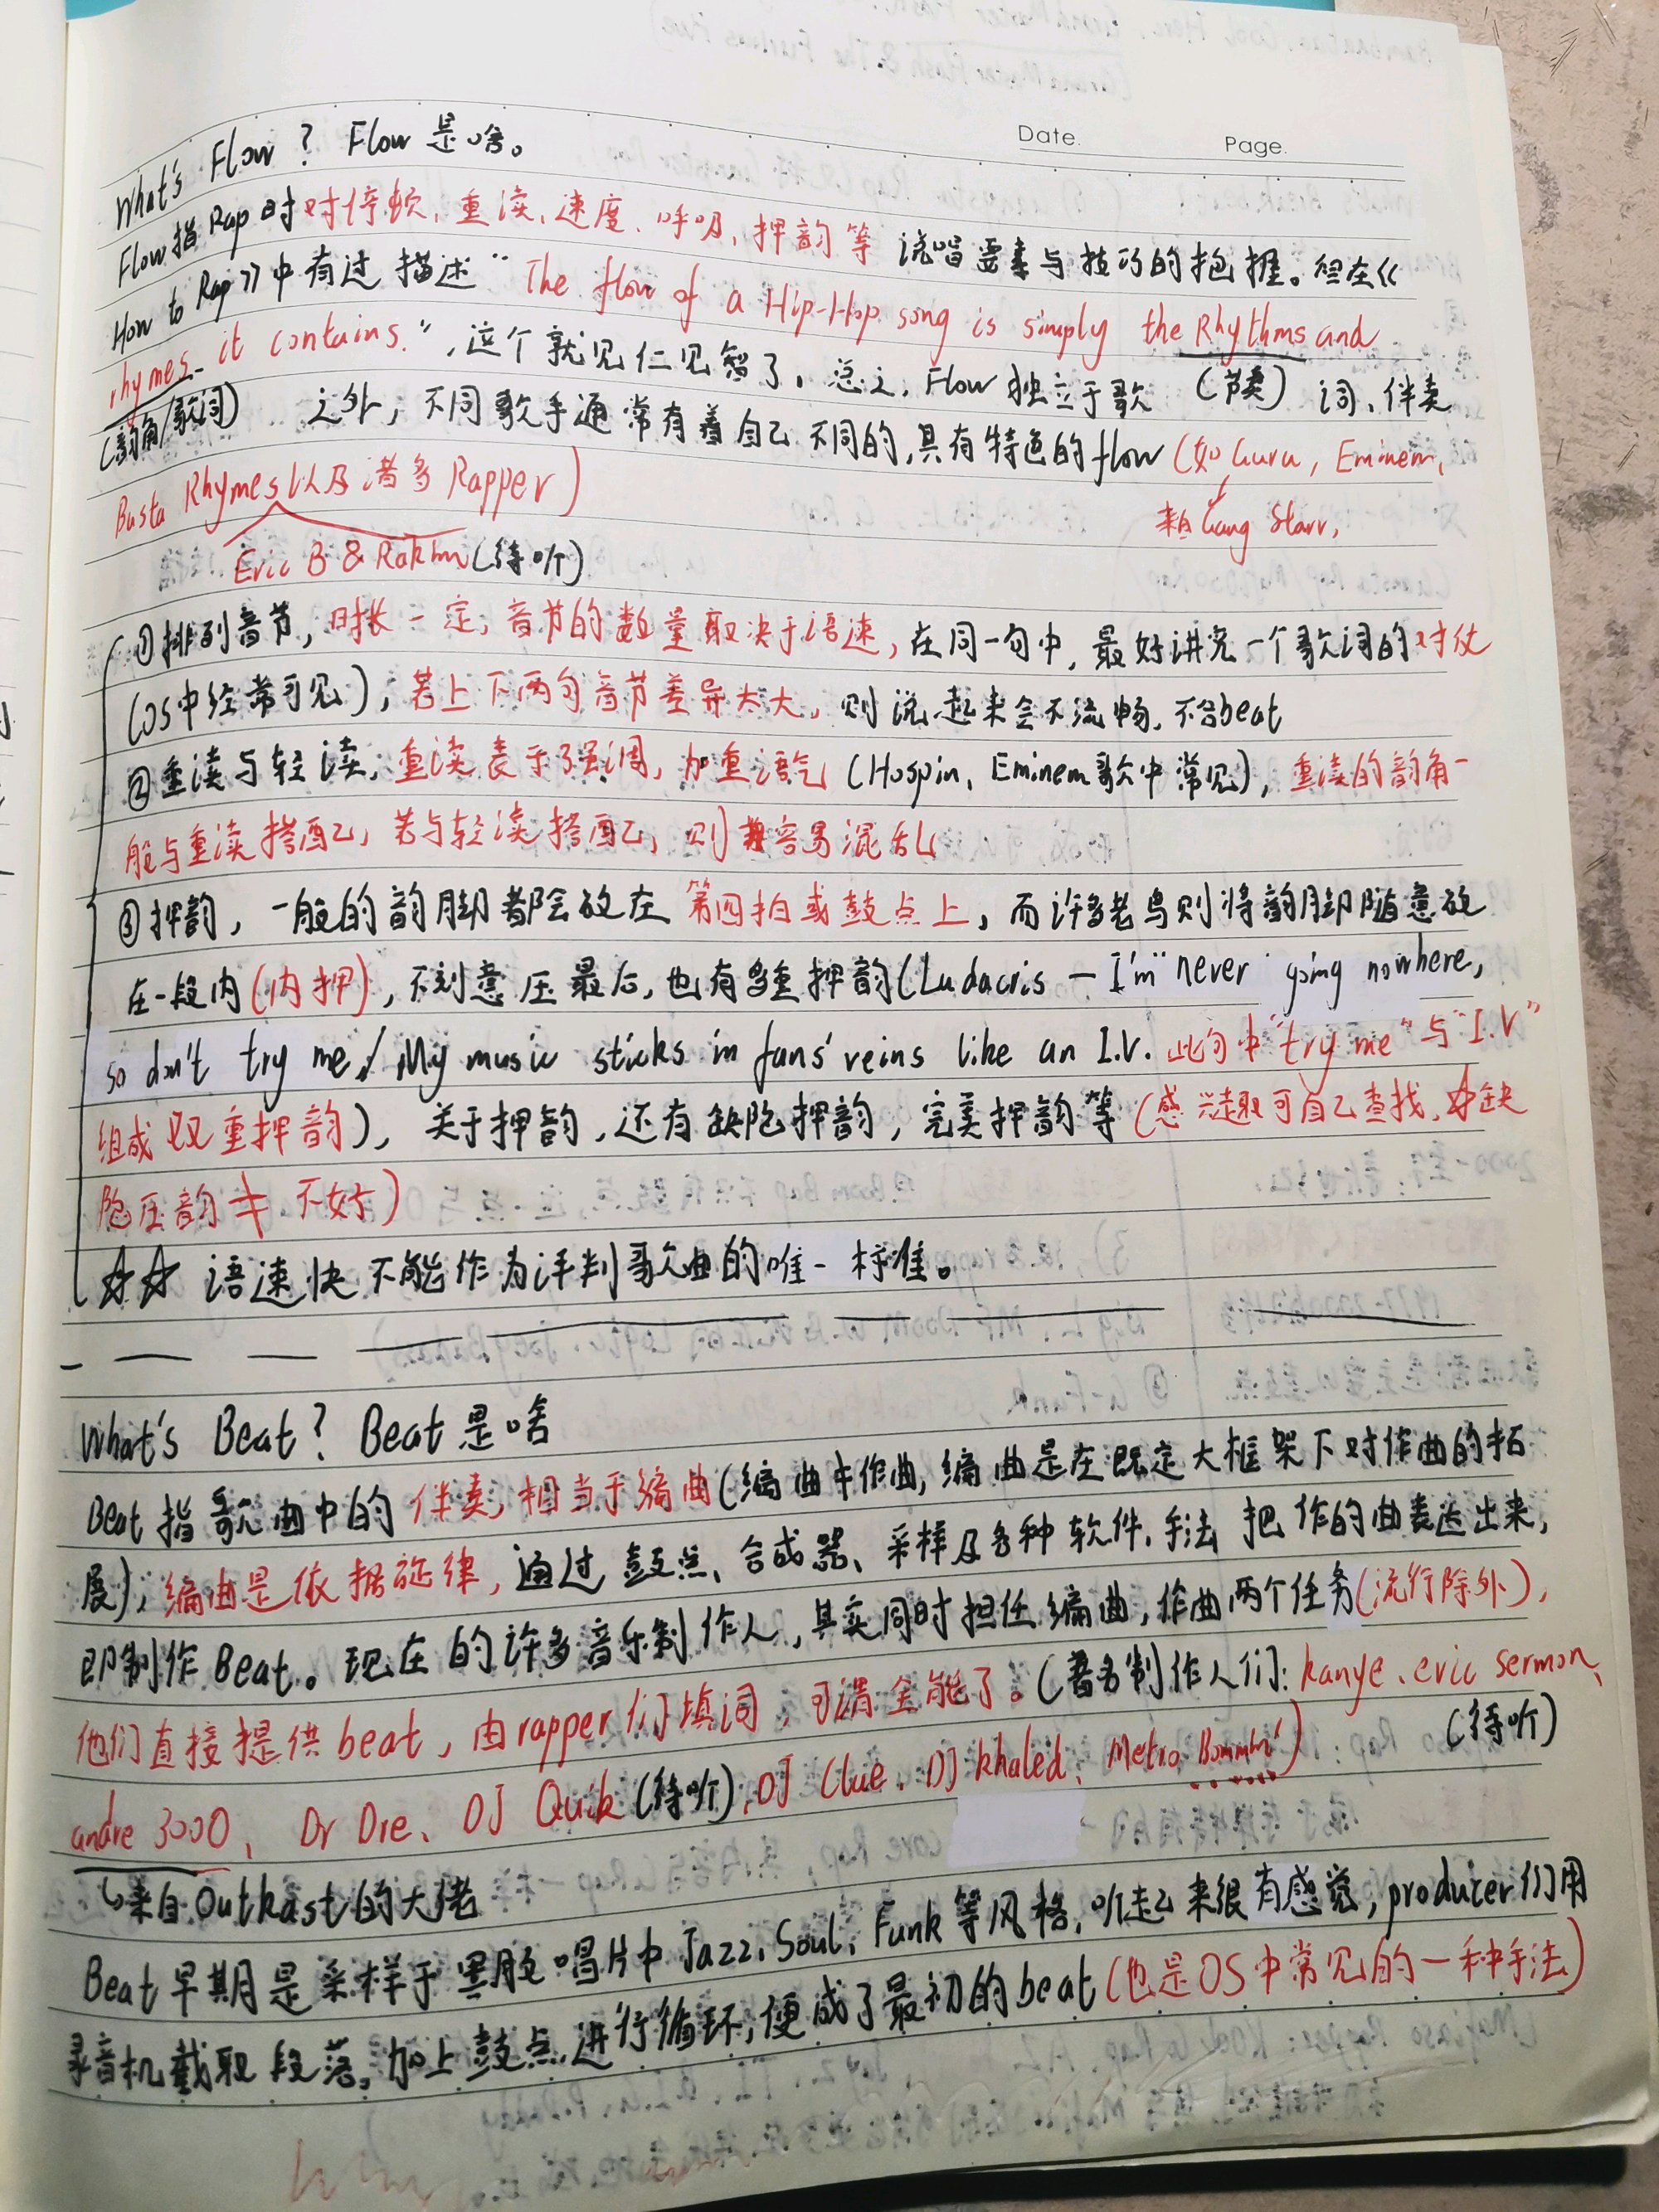 Date. Page.
What's Flow? Flow是啥。
Flow指Rap时对停顿、重读、速度、呼吸、押韵等说唱要素与技巧的把握。但在《
How to Rap》中有过描述“The flow of a Hip-Hop song is simply the Rhythms and
rhymes it contains.”，这个就见仁见智了。总之，Flow独立于歌 (节奏) 词、伴奏
(韵角/歌词) 之外，不同歌手通常有着自己不同的，具有特色的flow(如Guru, Eminem,
Busta Rhymes以及诸多Rapper)
来自Gang Starr,
Eric B & Rakim(待听)
①排列音节，时长一定，音节的数量取决于语速，在同一句中，最好讲究一个歌词的对仗
(OS中经常可见)，若上下两句音节差异太大，则说起来会不流畅，不合beat
②重读与轻读，重读表于强调，加重语气(Hospin, Eminem歌中常见)，重读的韵角一
般与重读搭配，若与轻读搭配，则容易混乱
③押韵，一般的韵脚都会放在第四拍或鼓点上，而许多老鸟则将韵脚随意放
在一段内(内押)，不刻意压最后，也有多重押韵(Ludacris — I'm never going nowhere,
so don't try me/My music sticks in fans' veins like an I.V. 此句中“try me”与“I.V”
组成双重押韵)，关于押韵，还有缺陷押韵，完美押韵等(感兴趣可自己查找，☆缺
陷压韵≠不好)
☆☆ 语速快不能作为评判歌曲的唯一标准。
What's Beat? Beat是啥
Beat指歌曲中的伴奏，相当于编曲(编曲≠作曲，编曲是在既定大框架下对作曲的拓
展)，编曲是依据旋律，通过鼓点、合成器、采样及各种软件，手法 把作的曲表达出来，
即制作Beat。现在的许多音乐制作人，其实同时担任编曲，作曲两个任务(流行除外)，
他们直接提供beat，由rapper们填词，可谓全能了。(著名制作人们: kanye、eric sermon、
(待听)
andre 3000、Dr Dre、DJ Quik(待听)、DJ Clue、DJ khaled、Metro Boomin')
↳来自Outkast的大佬
Beat早期是采样于黑胶唱片中Jazz, Soul, Funk等风格，听起来很有感觉，producer们用
录音机截取段落，加上鼓点，进行循环，便成了最初的beat(也是OS中常见的一种手法)